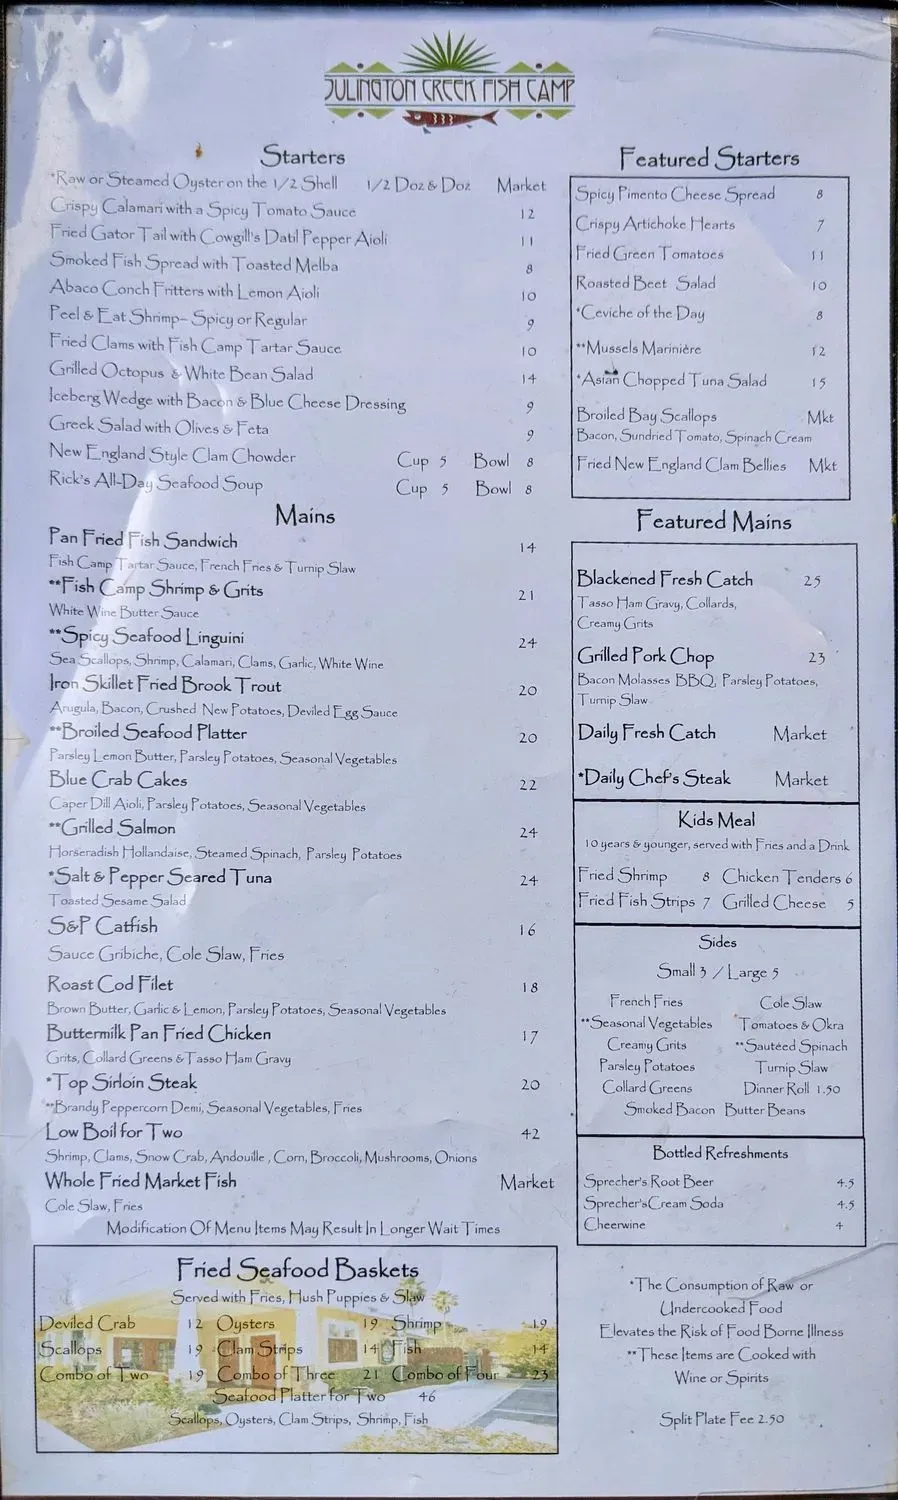 JULINGTON CREEK FISH CAMP
Starters
*Raw or Steamed Oyster on the 1/2 Shell 1/2 Doz & Doz Market
Crispy Calamari with a Spicy Tomato Sauce 12
Fried Gator Tail with Cowgill's Datil Pepper Aioli 11
Smoked Fish Spread with Toasted Melba 8
Abaco Conch Fritters with Lemon Aioli 10
Peel & Eat Shrimp– Spicy or Regular 9
Fried Clams with Fish Camp Tartar Sauce 10
Grilled Octopus & White Bean Salad 14
Iceberg Wedge with Bacon & Blue Cheese Dressing 9
Greek Salad with Olives & Feta 9
New England Style Clam Chowder Cup 5 Bowl 8
Rick's All-Day Seafood Soup Cup 5 Bowl 8
Mains
Pan Fried Fish Sandwich 14
Fish Camp Tartar Sauce, French Fries & Turnip Slaw
**Fish Camp Shrimp & Grits 21
White Wine Butter Sauce
**Spicy Seafood Linguini 24
Sea Scallops, Shrimp, Calamari, Clams, Garlic, White Wine
Iron Skillet Fried Brook Trout 20
Arugula, Bacon, Crushed New Potatoes, Deviled Egg Sauce
**Broiled Seafood Platter 20
Parsley Lemon Butter, Parsley Potatoes, Seasonal Vegetables
Blue Crab Cakes 22
Caper Dill Aioli, Parsley Potatoes, Seasonal Vegetables
**Grilled Salmon 24
Horseradish Hollandaise, Steamed Spinach, Parsley Potatoes
*Salt & Pepper Seared Tuna 24
Toasted Sesame Salad
S&P Catfish 16
Sauce Gribiche, Cole Slaw, Fries
Roast Cod Filet 18
Brown Butter, Garlic & Lemon, Parsley Potatoes, Seasonal Vegetables
Buttermilk Pan Fried Chicken 17
Grits, Collard Greens & Tasso Ham Gravy
*Top Sirloin Steak 20
**Brandy Peppercorn Demi, Seasonal Vegetables, Fries
Low Boil for Two 42
Shrimp, Clams, Snow Crab, Andouille , Corn, Broccoli, Mushrooms, Onions
Whole Fried Market Fish Market
Cole Slaw, Fries
Modification Of Menu Items May Result In Longer Wait Times
Fried Seafood Baskets
Served with Fries, Hush Puppies & Slaw
Deviled Crab 12 Oysters 19 Shrimp 19
Scallops 19 Clam Strips 14 Fish 14
Combo of Two 19 Combo of Three 21 Combo of Four 23
Seafood Platter for Two 46
Scallops, Oysters, Clam Strips, Shrimp, Fish
Featured Starters
Spicy Pimento Cheese Spread 8
Crispy Artichoke Hearts 7
Fried Green Tomatoes 11
Roasted Beet Salad 10
*Ceviche of the Day 8
**Mussels Marinière 12
*Asian Chopped Tuna Salad 15
Broiled Bay Scallops Mkt
Bacon, Sundried Tomato, Spinach Cream
Fried New England Clam Bellies Mkt
Featured Mains
Blackened Fresh Catch 25
Tasso Ham Gravy, Collards,
Creamy Grits
Grilled Pork Chop 23
Bacon Molasses BBQ, Parsley Potatoes,
Turnip Slaw
Daily Fresh Catch Market
*Daily Chef's Steak Market
Kids Meal
10 years & younger, served with Fries and a Drink
Fried Shrimp 8 Chicken Tenders 6
Fried Fish Strips 7 Grilled Cheese 5
Sides
Small 3 / Large 5
French Fries Cole Slaw
**Seasonal Vegetables Tomatoes & Okra
Creamy Grits **Sautéed Spinach
Parsley Potatoes Turnip Slaw
Collard Greens Dinner Roll 1.50
Smoked Bacon Butter Beans
Bottled Refreshments
Sprecher's Root Beer 4.5
Sprecher'sCream Soda 4.5
Cheerwine 4
*The Consumption of Raw or
Undercooked Food
Elevates the Risk of Food Borne Illness
**These Items are Cooked with
Wine or Spirits
Split Plate Fee 2.50